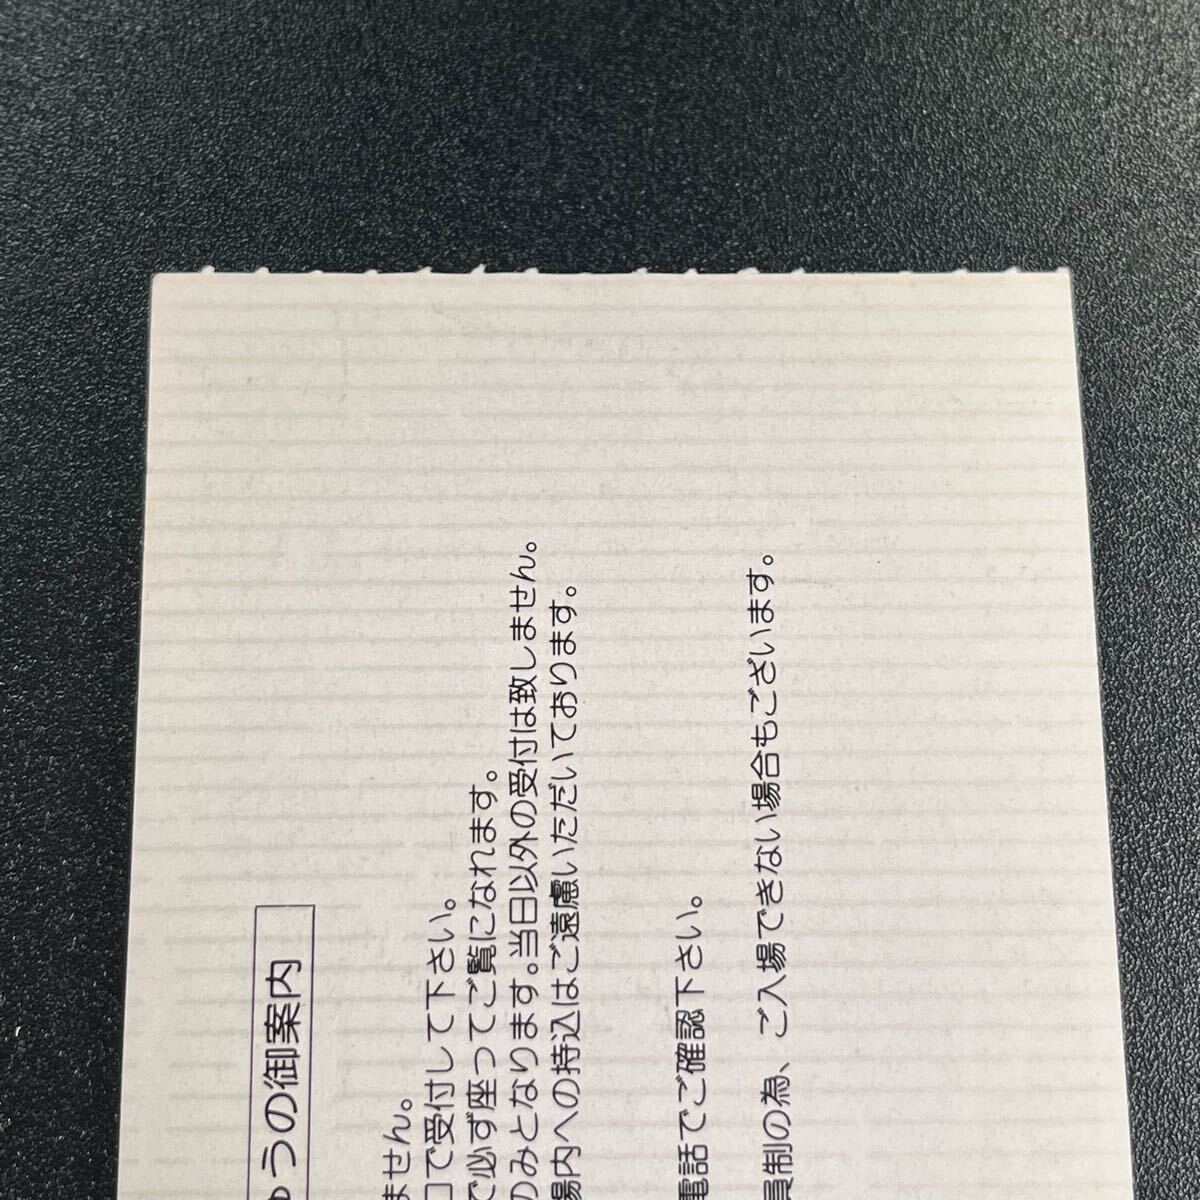 ゅうの御案内
ません。
口で受付して下さい。
で必ず座ってご覧になれます。
のみとなります。当日以外の受付は致しません。
場内への持込はご遠慮いただいております。
電話でご確認下さい。
員制の為、ご入場できない場合もございます。